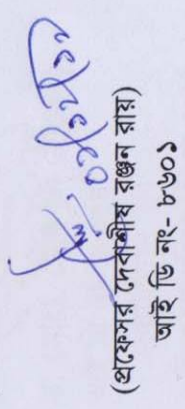 (প্রফেসর দেবাশীষ রঞ্জন রায়)
আই ডি নং- ৮৬০১